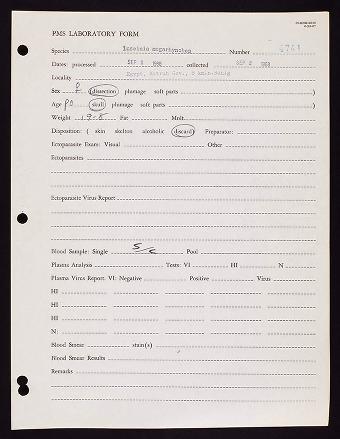 PMS LABORATORY FORM
Species Luscinia megarhynchos Number 4761
Dates: processed SEP 2 1968 collected SEP 2 1968
Locality Egypt, Matruh Gov.,
Sex ♀ (dissection) plumage soft parts )
Age (skull) plumage soft parts )
Weight 19.8 Fat Molt
Disposition: ( skin skelton alcoholic (discard) Preparator:
Ectoparasite Exam: Visual Other
Ectoparasites
Ectoparasite Virus Report
Blood Sample: Single S/C Pool
Plasma Analysis Tests: VI HI N
Plasma Virus Report. VI: Negative Positive Virus
HI
HI
HI
N:
Blood Smear stain(s)
Blood Smear Results
Remarks